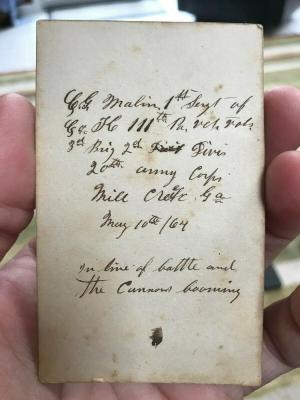 C.G. Malin, 1st Sergt of
Co. H 111th Pa. vet. vols
3rd Brig 2nd Divis
20th army Corps
Mill Creek Ga
May 10th /64
In line of battle and
the Cannons booming